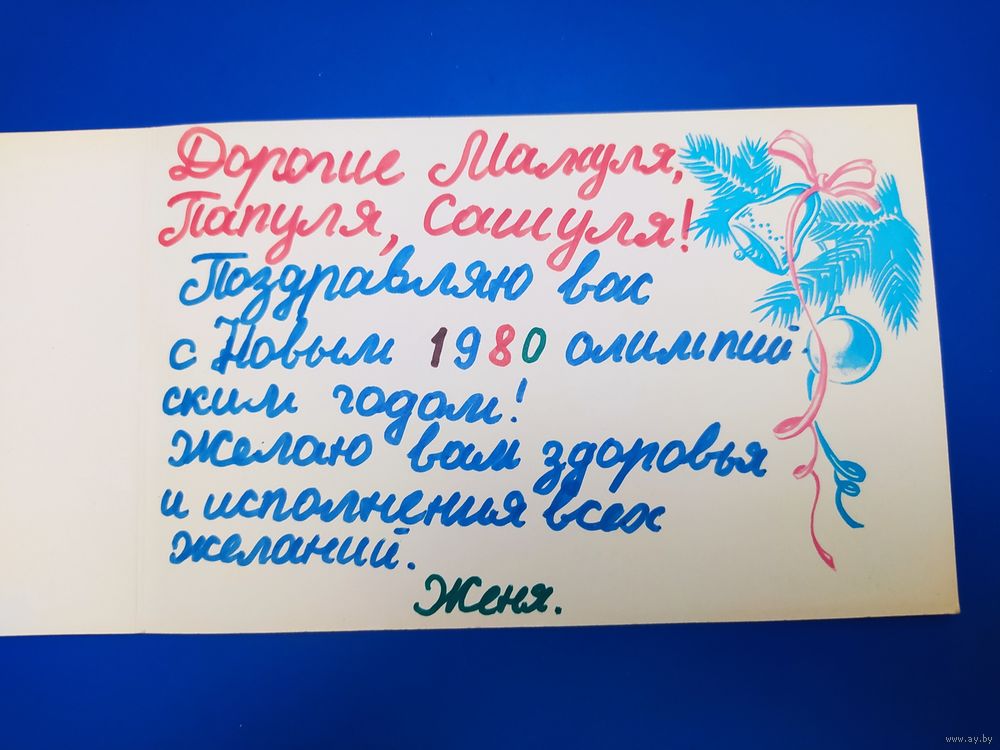 Дорогие Мамуля,
Папуля, Сашуля!
Поздравляю вас
с Новым 1980 олимпий-
ским годом!
Желаю вам здоровья
и исполнения всех
желаний.
Женя.
www.ay.by